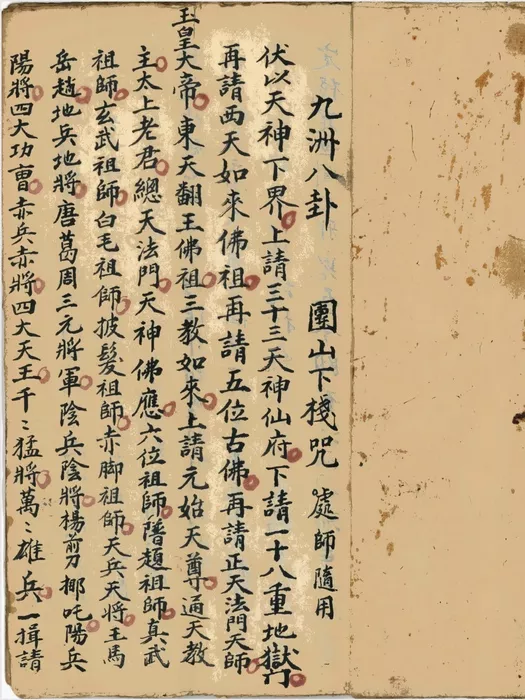 九洲八卦 團山下棧咒 處師隨用
伏以天神下界上請三十三天神仙府下請一十八重地獄門
再請西天如來佛祖再請五位古佛再請正天法門天師
玉皇大帝東天翻王佛祖三教如來上請元始天尊通天教
主太上老君總天法門天神佛應六位祖師階趙祖師真武
祖師玄武祖師白毛祖師披髮祖師赤脚祖師天兵天將王馬
岳趙地兵地將唐葛周三元將軍陰兵陰將楊剪刀梛吒陽兵
陽將四大功曹赤兵赤將四大天王千〻猛將萬〻雄兵一揖請